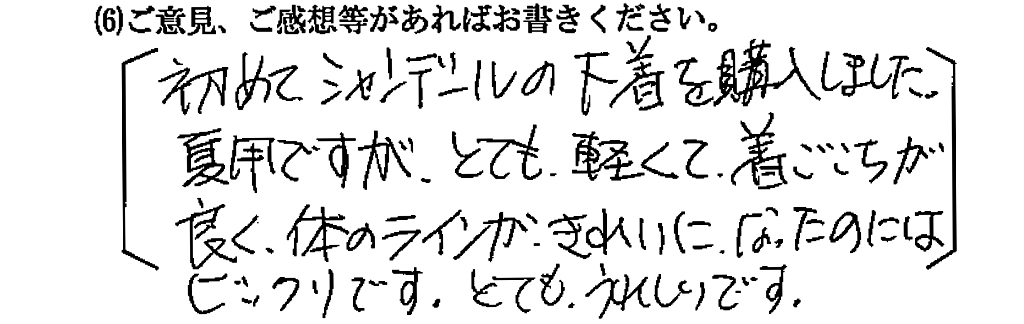 (6)ご意見、ご感想等があればお書きください。
初めてシャンデールの下着を購入しました。
夏用ですが、とても、軽くて、着ごこちが
良く、体のラインが、きれいに、なったのには
ビックリです。とても、うれしいです。